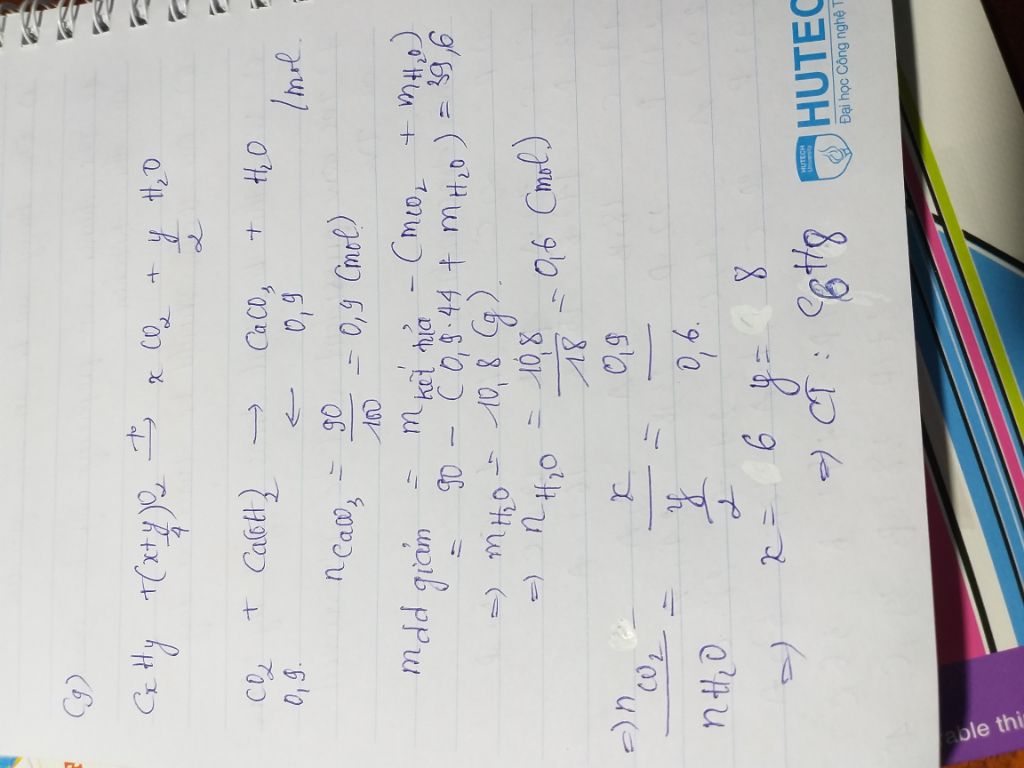 C9)
CxHy + (x+y/4)O2 t° → x CO2 + y/2 H2O
CO2 + Ca(OH)2 → CaCO3 + H2O (mol
0,9. ← 0,9
nCaCO3 = 90/100 = 0,9 (mol)
mdd giảm = m kết tủa - (mCO2 + mH2O)
= 90 - (0,9.44 + mH2O) = 39,6
=) mH2O = 10,8 (g).
=) nH2O = 10,8/18 = 0,6 (mol)
=) nCO2/nH2O = x/(y/2) = 0,9/0,6.
=) x = 6 y = 8
=) CT : C6H8
HUTECH
University
HUTEC
Đại học Công nghệ T
able thi